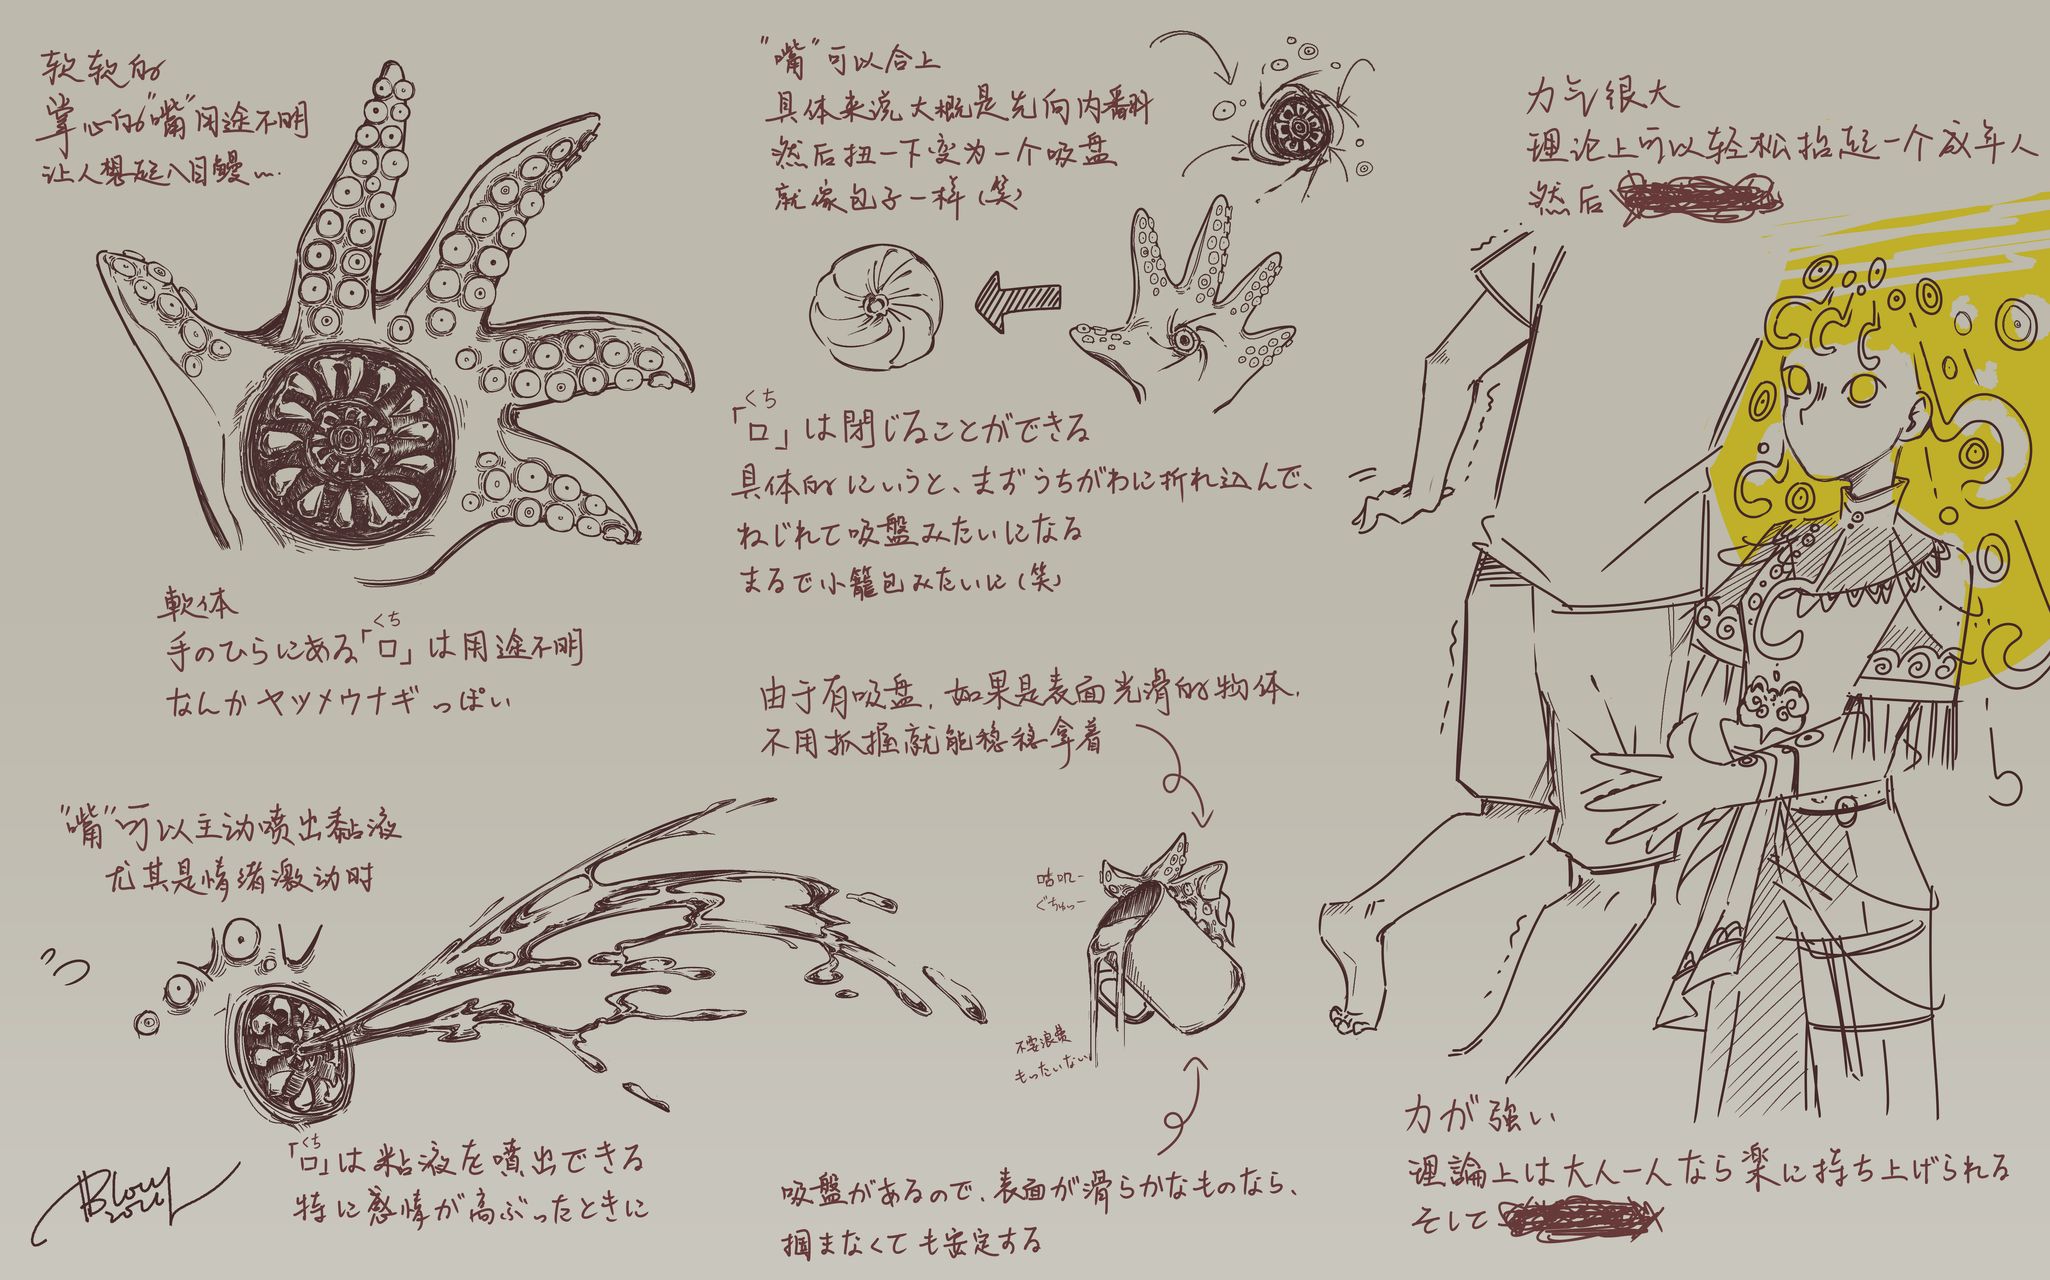 软软的
掌心的“嘴”用途不明
让人想起八目鳗...
軟体
手のひらにある「口」は用途不明
くち
なんかヤツメウナギっぽい
“嘴”可以合上
具体来说大概是先向内翻
然后扭一下变为一个吸盘
就像包子一样(笑)
くち
「口」は閉じることができる
具体的にいうと、まずうちがわに折れ込んで、
ねじれて吸盤みたいになる
まるで小籠包みたいに(笑)
力气很大
理论上可以轻松抬起一个成年人
然后
力が強い
理論上は大人一人なら楽に持ち上げられる
そして
“嘴”可以主动喷出黏液
尤其是情绪激动时
くち
「口」は粘液を噴出できる
特に感情が高ぶったときに
由于有吸盘,如果是表面光滑的物体,
不用抓握就能稳稳拿着
咕叽-
ぐちゅっー
不要浪费
もったいない
吸盤があるので、表面が滑らかなものなら、
掴まなくても安定する